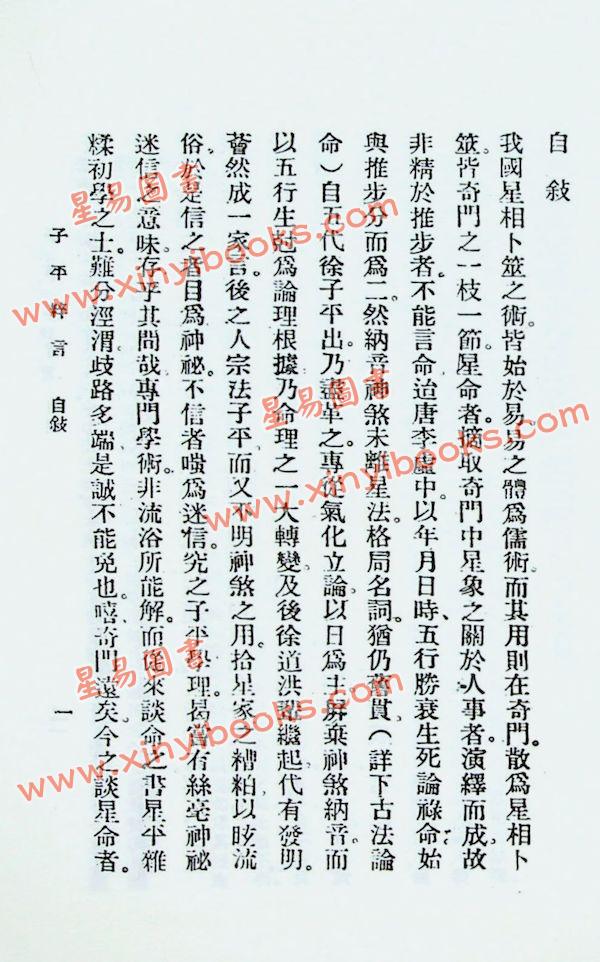 自敍
我國星相卜筮之術。皆始於易。易之體爲儒術。而其用則在奇門。散爲星相卜
筮。皆奇門之一枝一節。星命者。摘取奇門中星象之關於人事者。演繹而成。故
非精於推步者。不能言命。迨唐李虛中。以年月日時、五行勝衰生死論祿命。始
與推步分而爲二。然納音神煞。未離星法。格局名詞。猶仍舊貫(詳下古法論
命)自五代徐子平出。乃盡革之。專從氣化立論。以日爲主。屏棄神煞納音。而
以五行生尅爲論理根據。乃命理之一大轉變。及後徐道洪 繼起。代有發明。
薈然成一家言。後之人宗法子平。而又不明神煞之用。拾星家之糟粕以眩流
俗。於是信之者目爲神祕。不信者嗤爲迷信。究之子平學理。曷嘗有絲毫神祕
迷信之意味存乎其間哉。專門學術。非流俗所能解。而從來談命之書。星平雜
糅。初學之士。難分涇渭。歧路多端。是誠不能免也。嘻。奇門遠矣。今之談星命者。
子平粹言 自敍
一
星易圖書
www.xinyibooks.com
星易圖書
www.xinyibooks.com
星易圖書
www.xinyibooks.com